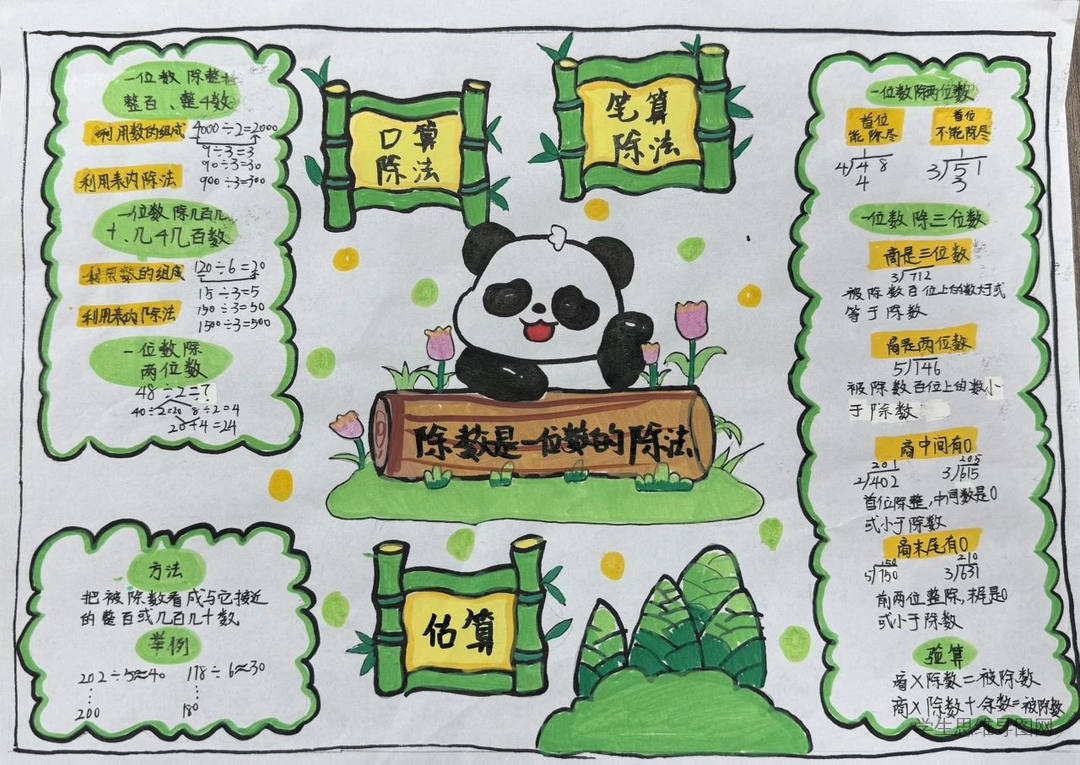 一位数除整十
整百、整千数
利用数的组成 4000÷2=2000
9÷3=3
90÷3=30
利用表内除法
900÷3=300
一位数除几百几
十、几千几百数
利用数的组成 120÷6=20
15÷3=5
利用表内除法
150÷3=50
1500÷3=500
一位数除
两位数
48÷2=?
40÷2=20 8÷2=4
20+4=24
口算
除法
笔算
除法
除数是一位数的除法
方法
把被除数看成与它接近
的整百或几百几十数
举例
202÷5≈40 178÷6≈30
200 180
估算
一位数除两位数
首位
能除尽
首位
不能除尽
1
4)48
4
1
3)51
3
一位数除三位数
商是三位数
3)712
被除数百位上的数大于或
等于除数
商是两位数
5)146
被除数百位上的数小
于除数
商中间有0
201
2)402
205
3)615
首位除整,中间数是0
或小于除数
商末尾有0
150
5)750
210
3)631
前两位整除,末尾是0
或小于除数
验算
商×除数=被除数
商×除数+余数=被除数
学生思维导图网